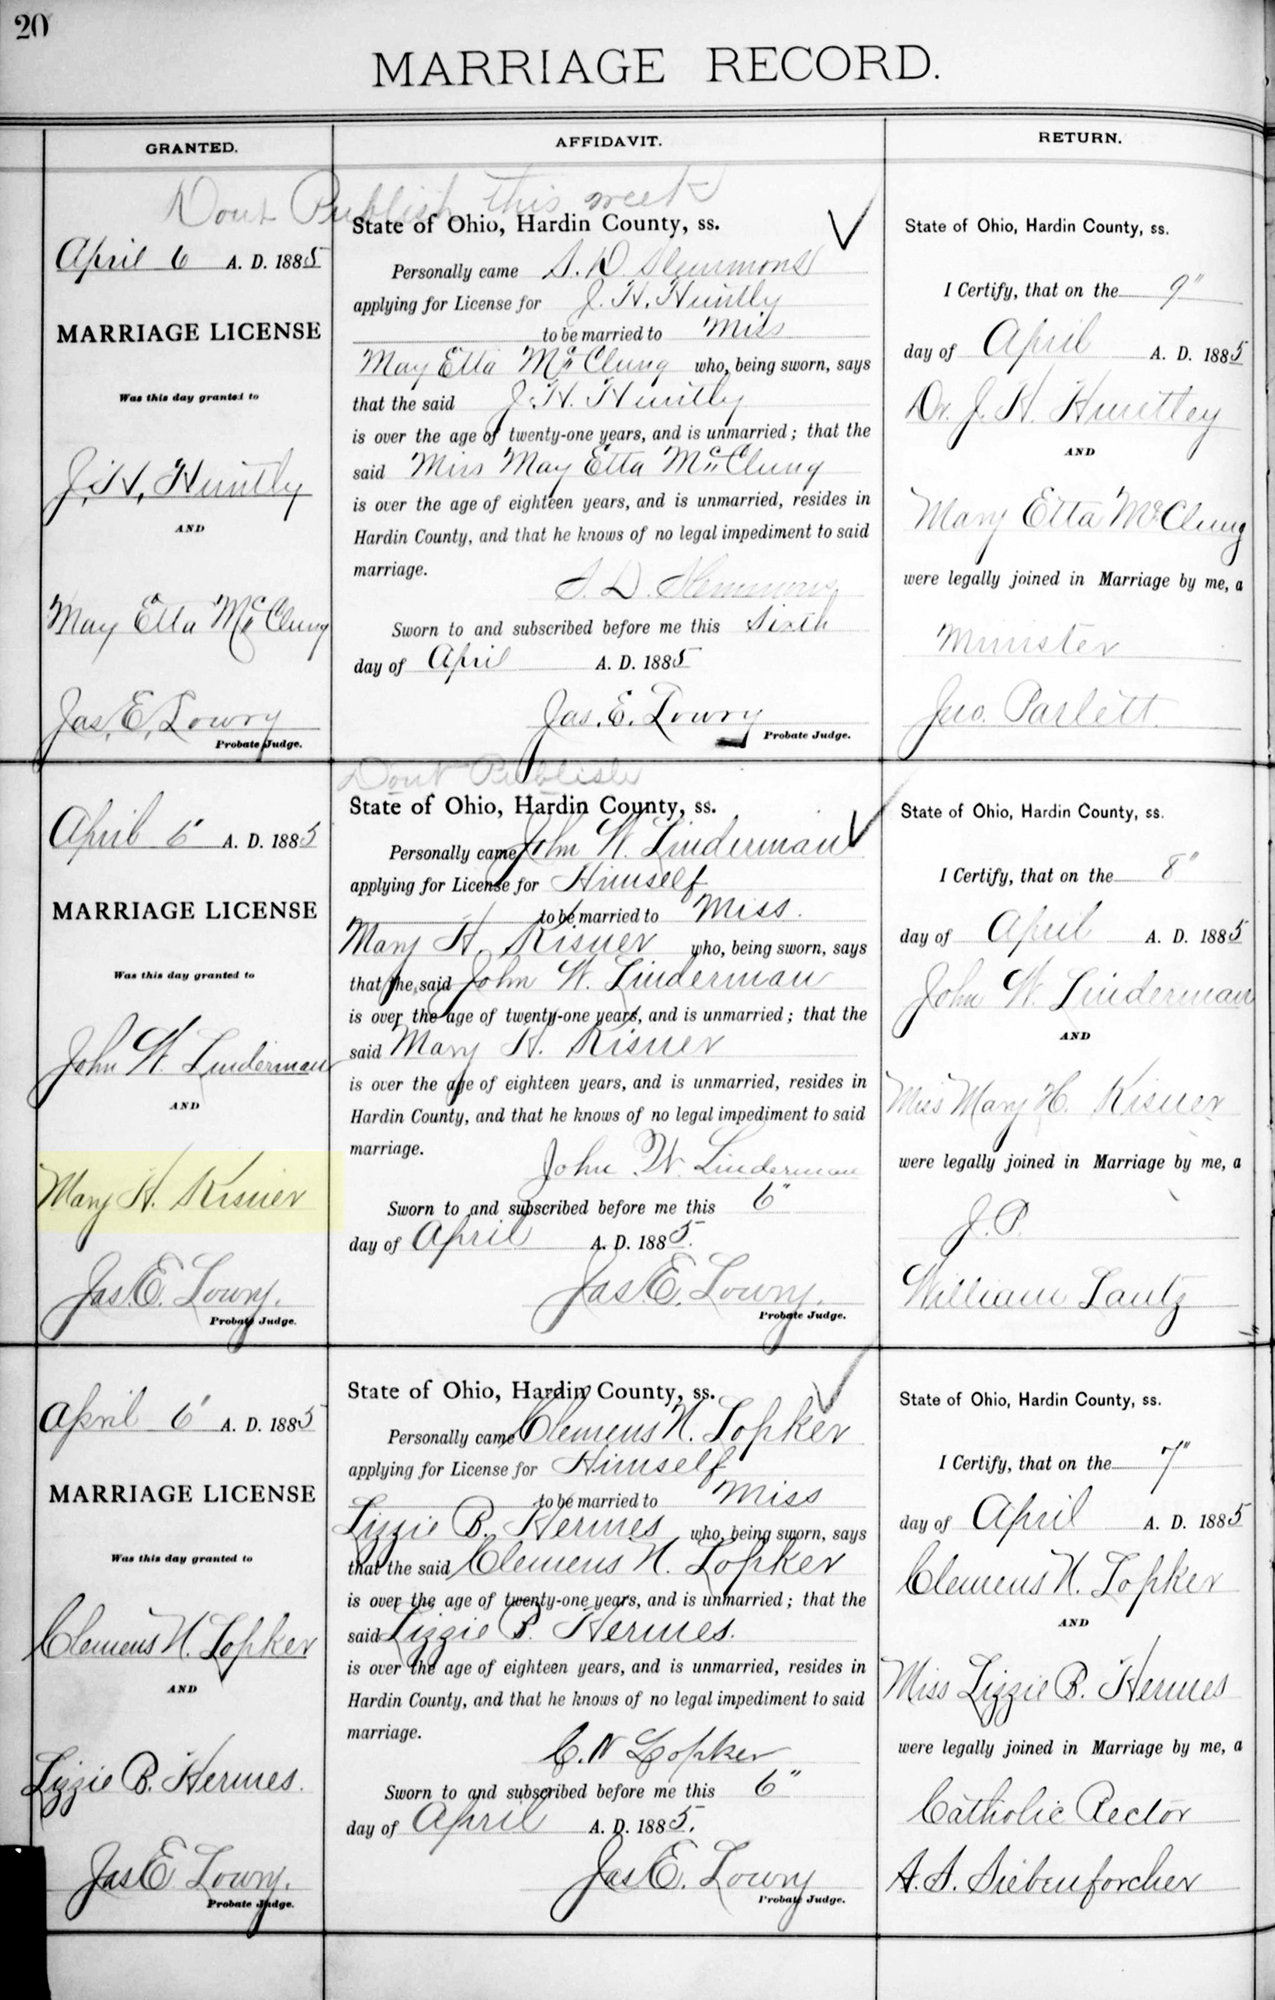 20
MARRIAGE RECORD.
GRANTED.
AFFIDAVIT.
RETURN.
Dont Publish this week
April 6 A. D. 1885
MARRIAGE LICENSE
Was this day granted to
J. H. Huntly
AND
May Etta McClung
Jas. E. Lowry
Probate Judge.
State of Ohio, Hardin County, ss.
Personally came S. D. Slemmons
applying for License for J. H. Huntly
to be married to Miss
May Etta McClung who, being sworn, says
that the said J. H. Huntly
is over the age of twenty-one years, and is unmarried; that the
said Miss May Etta McClung
is over the age of eighteen years, and is unmarried, resides in
Hardin County, and that he knows of no legal impediment to said
marriage.
S. D. Slemmons
Sworn to and subscribed before me this Sixth
day of April A. D. 1885
Jas. E. Lowry
Probate Judge.
State of Ohio, Hardin County, ss.
I Certify, that on the 9"
day of April A. D. 1885
Dr. J. H. Huntley
AND
Mary Etta McClung
were legally joined in Marriage by me, a
Minister
Jno. Parlett.
April 6" A. D. 1885
MARRIAGE LICENSE
Was this day granted to
John W. Linderman
AND
Mary H. Kisner
Jas. E. Lowry.
Probate Judge.
Dont Publish
State of Ohio, Hardin County, ss.
Personally came John W. Linderman
applying for License for Himself
to be married to Miss.
Mary H. Kisner who, being sworn, says
that the said John W. Linderman
is over the age of twenty-one years, and is unmarried; that the
said Mary H. Kisner
is over the age of eighteen years, and is unmarried, resides in
Hardin County, and that he knows of no legal impediment to said
marriage.
John W. Linderman
Sworn to and subscribed before me this 6"
day of April A. D. 1885.
Jas E. Lowry.
Probate Judge.
State of Ohio, Hardin County, ss.
I Certify, that on the 8"
day of April A. D. 1885
John W. Linderman
AND
Miss Mary H. Kisner
were legally joined in Marriage by me, a
J. P.
William Lautz
April 6" A. D. 1885
MARRIAGE LICENSE
Was this day granted to
Clemens N. Lopker
AND
Lizzie B. Hermes.
Jas E Lowry.
Probate Judge.
State of Ohio, Hardin County, ss.
Personally came Clemens N. Lopker
applying for License for Himself
to be married to Miss
Lizzie B. Hermes who, being sworn, says
that the said Clemens N. Lopker
is over the age of twenty-one years, and is unmarried; that the
said Lizzie B. Hermes.
is over the age of eighteen years, and is unmarried, resides in
Hardin County, and that he knows of no legal impediment to said
marriage.
C. N Lopker
Sworn to and subscribed before me this 6"
day of April A. D. 1885.
Jas E. Lowry
Probate Judge.
State of Ohio, Hardin County, ss.
I Certify, that on the 7"
day of April A. D. 1885
Clemens N. Lopker
AND
Miss Lizzie B. Hermes
were legally joined in Marriage by me, a
Catholic Rector
A. S. Siebenforcher